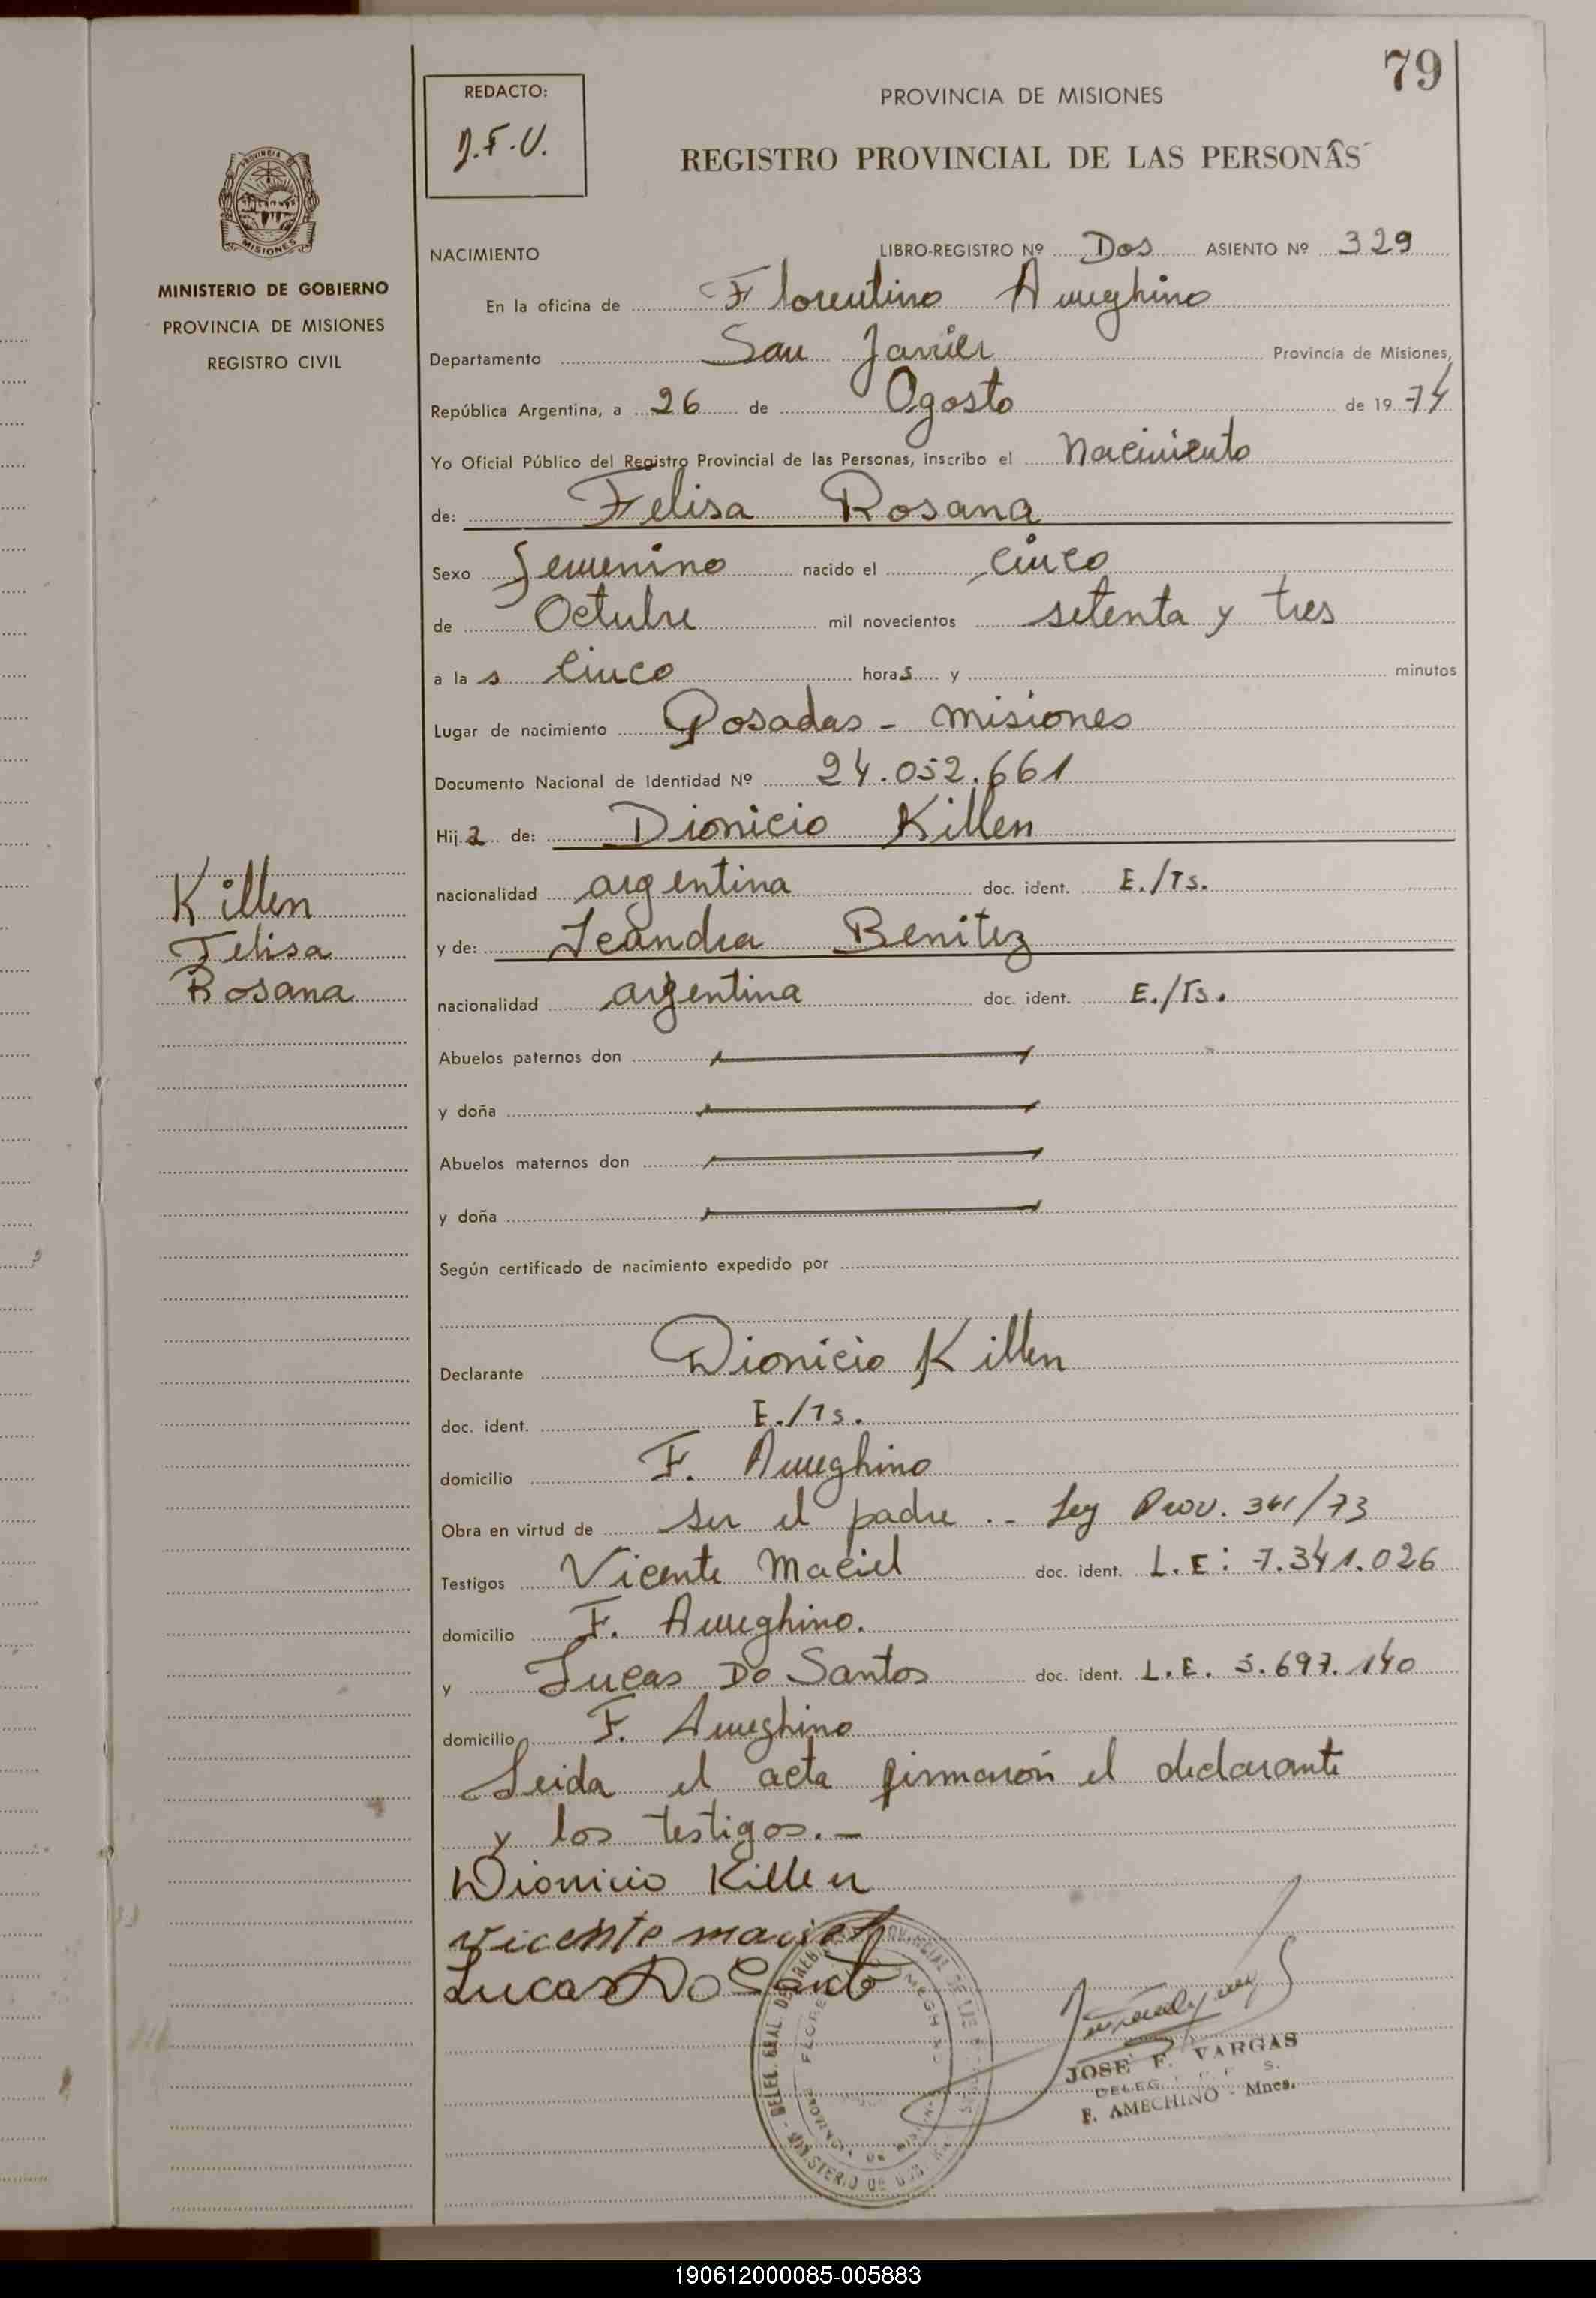 79
REDACTO:
J.F.V.
PROVINCIA DE MISIONES
REGISTRO PROVINCIAL DE LAS PERSONAS
PROVINCIA DE
MISIONES
MINISTERIO DE GOBIERNO
PROVINCIA DE MISIONES
REGISTRO CIVIL
NACIMIENTO LIBRO-REGISTRO Nº Dos ASIENTO Nº 329
En la oficina de Florentino Ameghino
Departamento San Javier Provincia de Misiones,
República Argentina, a 26 de Agosto de 19 74
Yo Oficial Público del Registro Provincial de las Personas, inscribo el Nacimiento
de: Felisa Rosana
Sexo femenino nacido el cinco
de Octubre mil novecientos setenta y tres
a la s cinco horas y minutos
Lugar de nacimiento Posadas - misiones
Documento Nacional de Identidad Nº 24.052.661
Hija de: Dionicio Killen
nacionalidad argentina doc. ident. E./Ts.
y de: Leandra Benitez
nacionalidad argentina doc. ident. E./Ts.
Killen
Felisa
Rosana
Abuelos paternos don
y doña
Abuelos maternos don
y doña
Según certificado de nacimiento expedido por
Declarante Dionicio Killen
doc. ident. E./Ts.
domicilio F. Ameghino
Obra en virtud de ser el padre .- Ley Prov. 341/73
Testigos Vicente Maciel doc. ident. L.E: 7.341.026
domicilio F. Ameghino.
y Lucas Do Santos doc. ident. L.E. 5.697.140
domicilio F. Ameghino
Leida el acta firmaron el declarante
y los testigos.-
Dionicio Killen
Vicente maciel
Lucas Do Santo
JOSE F. VARGAS
F. AMECHINO - Mnes.
190612000085-005883